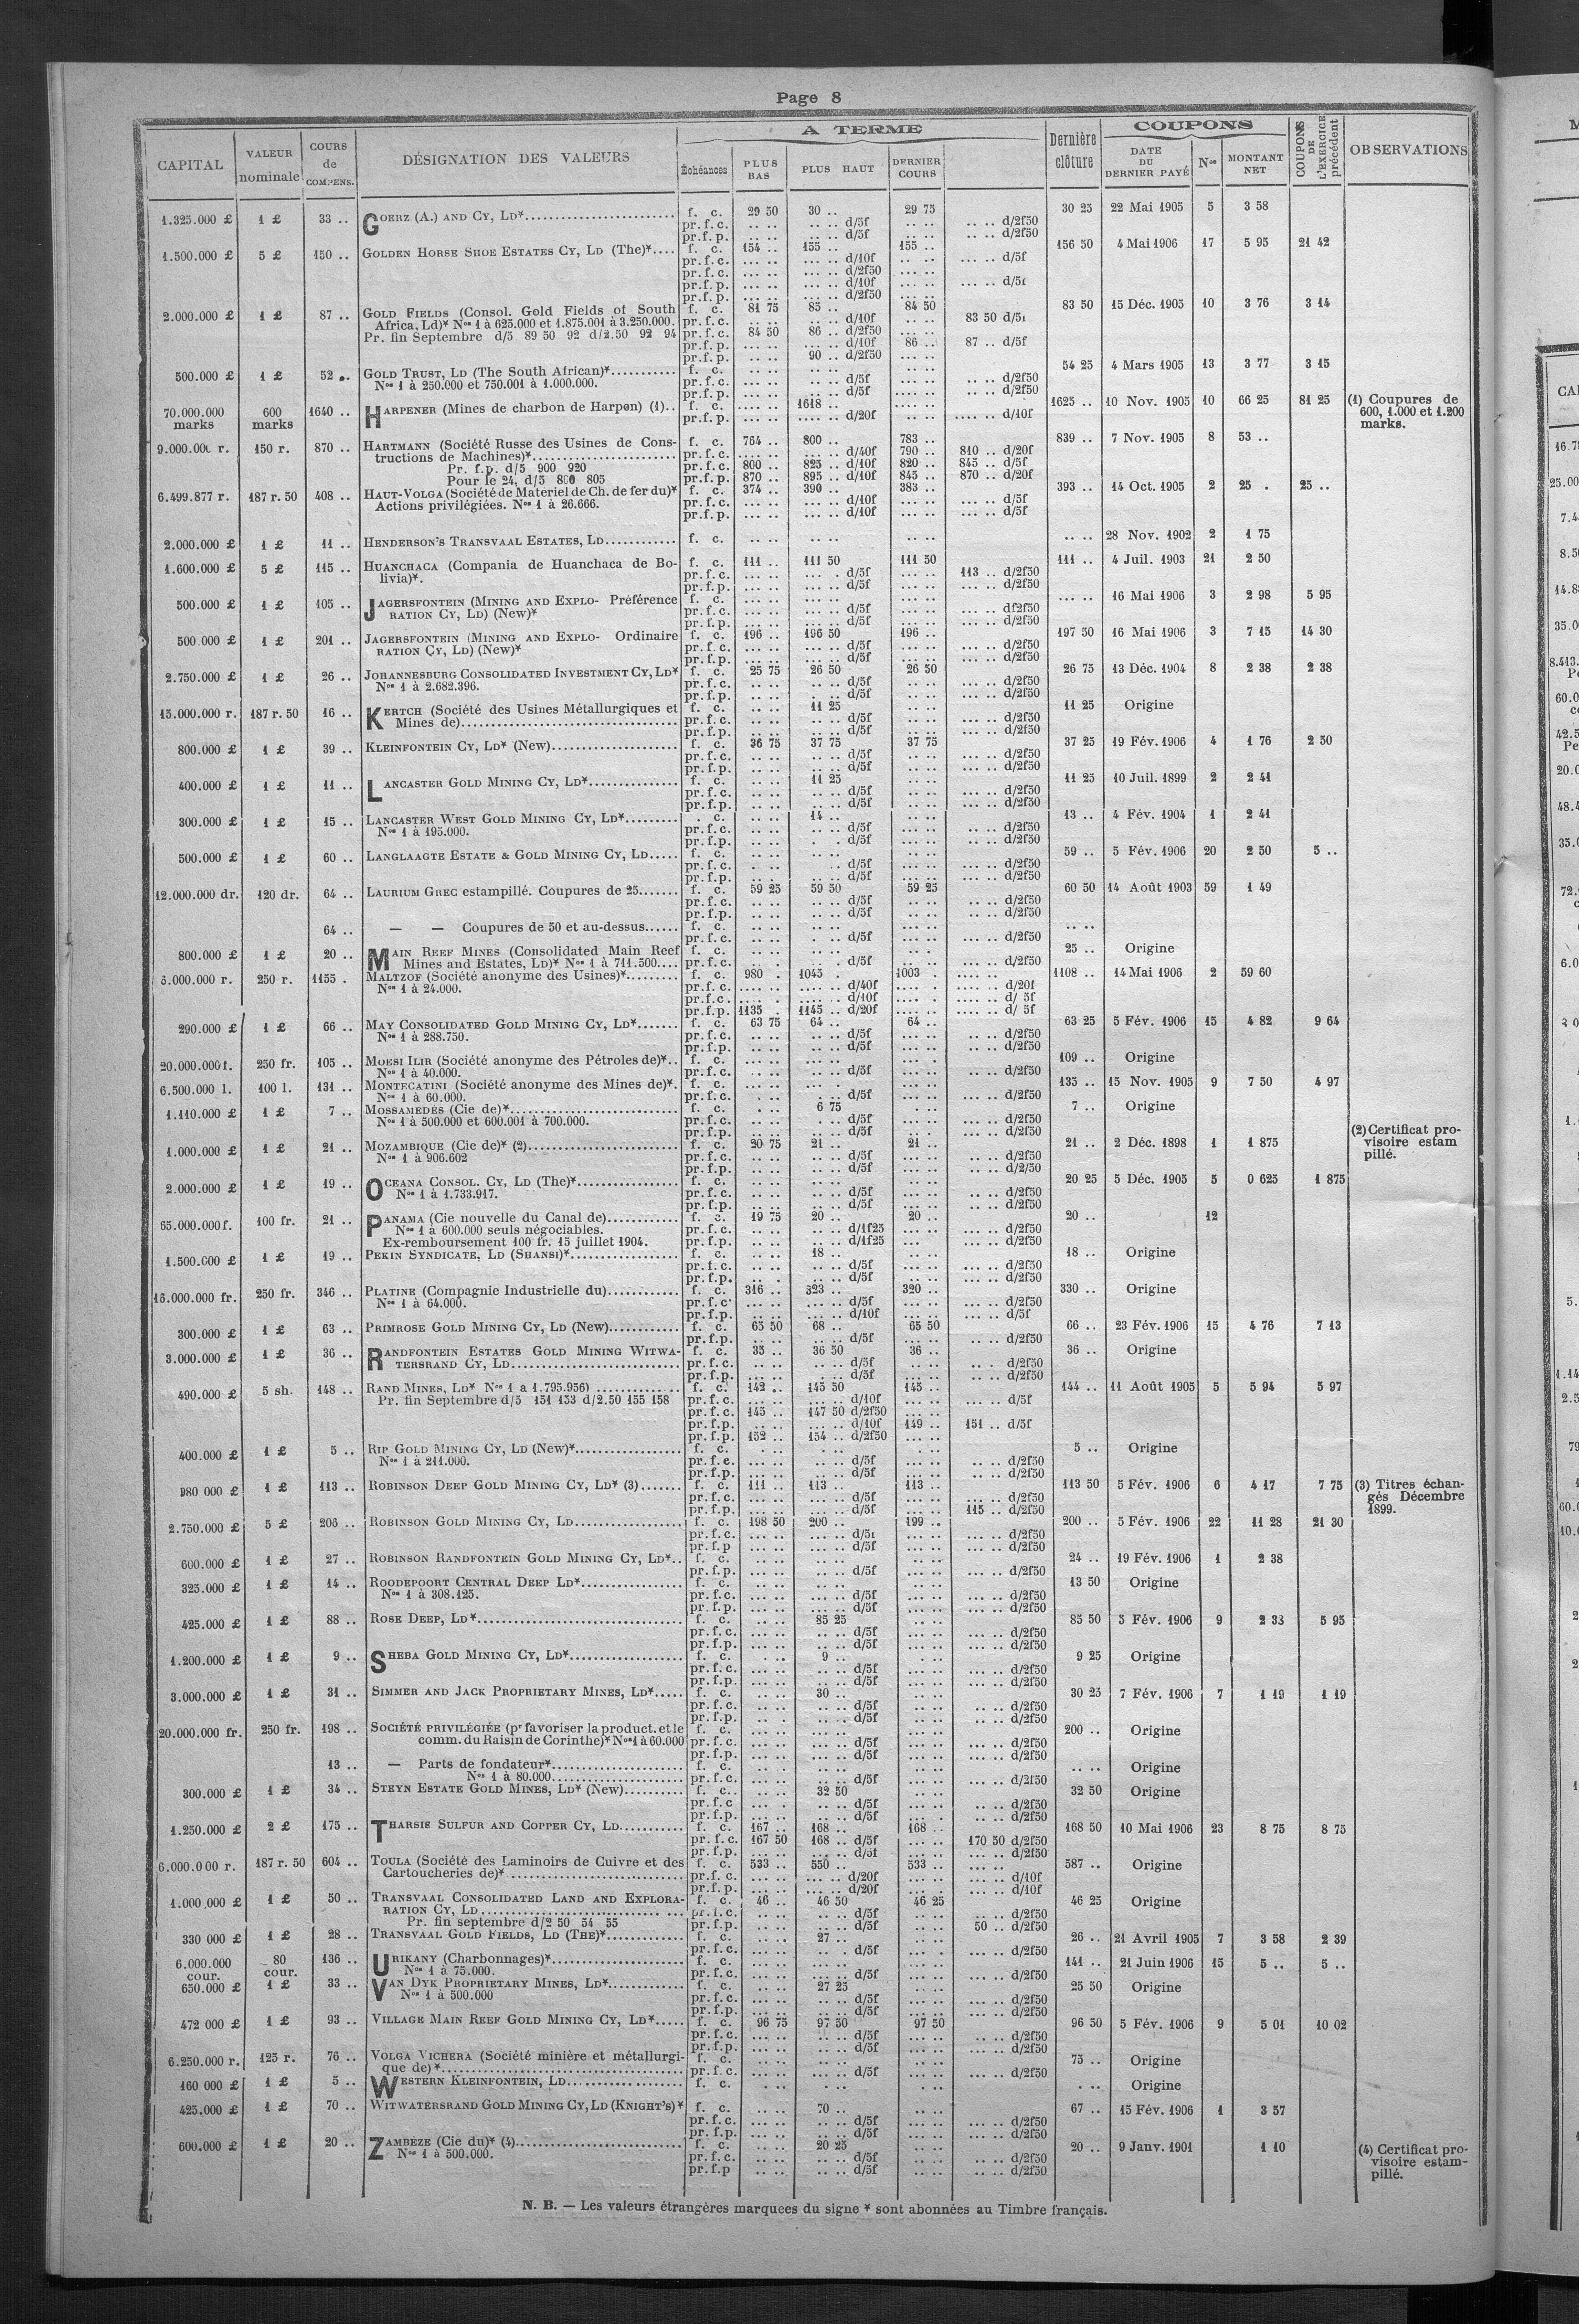 Page 8
CAPITAL
VALEUR nominale
COURS de COMPENS.
DÉSIGNATION DES VALEURS
A TERME
Échéances
PLUS BAS
PLUS HAUT
DERNIER COURS
Dernière clôture
COUPONS
DATE DU DERNIER PAYÉ
Nos
MONTANT NET
COUPONS DE L'EXERCICE précédent
OBSERVATIONS
1.325.000 £ 1 £ 33 .. GOERZ (A.) AND CY, LD* f. c. 29 50 30 .. 29 75 30 25 22 Mai 1905 5 3 58
pr.f.c. .. .. .. .. d/5f .. .. d/2f50
pr.f.p. .. .. .. .. d/5f .. .. d/2f50
1.500.000 £ 5 £ 150 .. GOLDEN HORSE SHOE ESTATES CY, LD (The)* f. c. 154 .. 155 .. 155 .. 156 50 4 Mai 1906 17 5 95 21 42
pr.f.c. ... .. ... .. d/10f ... .. d/5f
pr.f.c. ... .. ... .. d/2f50
pr.f.p. ... .. ... .. d/10f ... .. d/5f
pr.f.p. ... .. ... .. d/2f50
2.000.000 £ 1 £ 87 .. GOLD FIELDS (Consol. Gold Fields of South f. c. 81 75 85 .. 84 50 83 50 15 Déc. 1905 10 3 76 3 14
Africa, Ld)* Nos 1 à 625.000 et 1.875.001 à 3.250.000. pr.f.c. .. .. .. .. d/10f 83 50 d/5f
Pr. fin Septembre d/5 89 50 92 d/2.50 92 94 pr.f.c. 84 50 86 .. d/2f50
pr.f.p. .. .. .. .. d/10f 86 .. 87 .. d/5f
pr.f.p. .. .. 90 .. d/2f50
500.000 £ 1 £ 52 .. GOLD TRUST, LD (The South African)* f. c. 54 25 4 Mars 1905 13 3 77 3 15
Nos 1 à 250.000 et 750.001 à 1.000.000. pr.f.c. .. .. .. .. d/5f .. .. d/2f50
pr.f.p. .. .. .. .. d/5f .. .. d/2f50
70.000.000 marks 600 marks 1640 .. HARPENER (Mines de charbon de Harpen) (1).. f. c. .... .. 1618 .. 1625 .. 10 Nov. 1905 10 66 25 81 25 (1) Coupures de 600, 1.000 et 1.200 marks.
pr.f.p. .... .. .... .. d/20f .... .. d/10f
150 r. 870 .. HARTMANN (Société Russe des Usines de Cons- f. c. 764 .. 800 .. 783 .. 839 .. 7 Nov. 1905 8 53 ..
tructions de Machines)* pr.f.c. ... .. ... .. d/40f 790 .. 810 .. d/20f
Pr. f.p. d/5 900 920 pr.f.c. 800 .. 825 .. d/10f 820 .. 845 .. d/5f
Pour le 24, d/5 800 805 pr.f.p. 870 .. 895 .. d/10f 845 .. 870 .. d/20f
6.499.877 r. 187 r. 50 408 .. HAUT-VOLGA (Société de Materiel de Ch. de fer du)* f. c. 374 .. 390 .. 383 .. 393 .. 14 Oct. 1905 2 25 . 25 ..
Actions privilégiées. Nos 1 à 26.666. pr.f.c. ... .. ... .. d/10f ... .. d/5f
pr.f.p. ... .. ... .. d/10f ... .. d/5f
2.000.000 £ 1 £ 11 .. HENDERSON'S TRANSVAAL ESTATES, LD f. c. .. .. .. .. .. .. .. .. 28 Nov. 1902 2 1 75
1.600.000 £ 5 £ 115 .. HUANCHACA (Compania de Huanchaca de Bo- f. c. 111 .. 111 50 111 50 111 .. 4 Juil. 1903 21 2 50
livia)*. pr.f.c. ... .. d/5f 113 .. d/2f50
pr.f.p. ... .. d/5f ... .. d/2f50
500.000 £ 1 £ 105 .. JAGERSFONTEIN (MINING AND EXPLO- Préférence f. c. ... .. 16 Mai 1906 3 2 98 5 95
RATION CY, LD) (New)* pr.f.c. ... .. d/5f ... .. df2f50
pr.f.p. ... .. d/5f ... .. d/2f50
500.000 £ 1 £ 201 .. JAGERSFONTEIN (MINING AND EXPLO- Ordinaire f. c. 196 .. 196 50 196 .. 197 50 16 Mai 1906 3 7 15 14 30
RATION CY, LD) (New)* pr.f.c. ... .. d/5f ... .. d/2f50
pr.f.p. ... .. d/5f ... .. d/2f50
2.750.000 £ 1 £ 26 .. JOHANNESBURG CONSOLIDATED INVESTMENT CY, LD* f. c. 25 75 26 50 26 50 26 75 13 Déc. 1904 8 2 38 2 38
Nos 1 à 2.682.396. pr.f.c. .. .. d/5f ... .. d/2f50
pr.f.p. .. .. d/5f ... .. d/2f50
15.000.000 r. 187 r. 50 16 .. KERTCH (Société des Usines Métallurgiques et f. c. .. .. 11 25 11 25 Origine
Mines de) pr.f.c. .. .. d/5f ... .. d/2f50
pr.f.p. .. .. d/5f ... .. d/2f50
800.000 £ 1 £ 39 .. KLEINFONTEIN CY, LD* (New) f. c. 36 75 37 75 37 75 37 25 19 Fév. 1906 4 1 76 2 50
pr.f.c. .. .. d/5f ... .. d/2f50
pr.f.p. .. .. d/5f ... .. d/2f50
400.000 £ 1 £ 11 .. LANCASTER GOLD MINING CY, LD* f. c. .. .. 11 25 11 25 10 Juil. 1899 2 2 41
pr.f.c. .. .. d/5f .. .. d/2f50
pr.f.p. .. .. d/5f .. .. d/2f50
300.000 £ 1 £ 15 .. LANCASTER WEST GOLD MINING CY, LD* . c. .. .. 14 .. 13 .. 4 Fév. 1904 1 2 41
Nos 1 à 195.000. pr.f.c. .. .. d/5f .. .. d/2f50
pr.f.p. .. .. d/5f .. .. d/2f50
500.000 £ 1 £ 60 .. LANGLAAGTE ESTATE & GOLD MINING CY, LD f. c. .. .. 59 .. 5 Fév. 1906 20 2 50 5 ..
pr.f.c. .. .. d/5f ... .. d/2f50
pr.f.p. .. .. d/5f ... .. d/2f50
12.000.000 dr. 120 dr. 64 .. LAURIUM GREC estampillé. Coupures de 25 f. c. 59 25 59 50 59 25 60 50 14 Août 1903 59 1 49
pr.f.c. .. .. d/5f ... .. d/2f50
pr.f.p. .. .. d/5f ... .. d/2f50
64 .. — — Coupures de 50 et au-dessus f. c. .. .. .. ..
pr.f.c. .. .. d/5f ... .. d/2f50
800.000 £ 1 £ 20 .. MAIN REEF MINES (Consolidated Main Reef f. c. .. .. 25 .. Origine
Mines and Estates, LD)* Nos 1 à 711.500 pr.f.c. .. .. d/5f ... .. d/2f50
250 r. 1155 . MALTZOF (Société anonyme des Usines)* f. c. 980 . 1045 . 1003 . 1108 .. 14 Mai 1906 2 59 60
Nos 1 à 24.000. pr.f.c. .... .. d/40f .... .. d/20f
pr.f.c. .... .. d/10f .... .. d/ 5f
pr.f.p. 1135 . 1145 .. d/20f .... .. d/ 5f
290.000 £ 1 £ 66 .. MAY CONSOLIDATED GOLD MINING CY, LD* f. c. 63 75 64 .. 64 .. 63 25 5 Fév. 1906 15 4 82 9 64
Nos 1 à 288.750. pr.f.c. .. .. d/5f ... .. d/2f50
pr.f.p. .. .. d/5f ... .. d/2f50
20.000.000 f. 250 fr. 105 .. MOESI ILIR (Société anonyme des Pétroles de)*.. f. c. 109 .. Origine
Nos 1 à 40.000. pr.f.c. ... .. d/5f ... .. d/2f50
6.500.000 l. 100 l. 131 .. MONTECATINI (Société anonyme des Mines de)*. f. c. 135 .. 15 Nov. 1905 9 7 50 4 97
Nos 1 à 60.000. pr.f.c. ... .. d/5f ... .. d/2f50
1.110.000 £ 1 £ 7 .. MOSSAMEDES (Cie de)* f. c. . .. 6 75 7 .. Origine
Nos 1 à 500.000 et 600.001 à 700.000. pr.f.c. .. .. d/5f ... .. d/2f50
pr.f.p. .. .. d/5f ... .. d/2f50
1.000.000 £ 1 £ 21 .. MOZAMBIQUE (Cie de)* (2) f. c. 20 75 21 .. 21 .. 21 .. 2 Déc. 1898 1 1 875 (2) Certificat pro- visoire estam pillé.
Nos 1 à 906.602 pr.f.c. .. .. d/5f ... .. d/2f50
pr.f.p. .. .. d/5f ... .. d/2/50
2.000.000 £ 1 £ 19 .. OCEANA CONSOL. CY, LD (The)* f. c. 20 25 5 Déc. 1905 5 0 625 1 875
Nos 1 à 1.733.917. pr.f.c. .. .. d/5f ... .. d/2f50
pr.f.p. .. .. d/5f ... .. d/2f50
65.000.000 f. 100 fr. 21 .. PANAMA (Cie nouvelle du Canal de) f. c. 19 75 20 .. 20 .. 20 .. 12
Nos 1 à 600.000 seuls négociables. pr.f.c. .. .. d/1f25 ... .. d/2f50
Ex-remboursement 100 fr. 15 juillet 1904. pr.f.p. .. .. d/1f25 ... .. d/2f50
1.500.000 £ 1 £ 19 .. PEKIN SYNDICATE, LD (SHANSI)* f. c. .. .. 18 .. 18 .. Origine
pr.f.c. .. .. d/5f ... .. d/2f50
pr.f.p. .. .. d/5f ... .. d/2f50
16.000.000 fr. 250 fr. 346 .. PLATINE (Compagnie Industrielle du) f. c. 316 .. 323 .. 320 .. 330 .. Origine
Nos 1 à 64.000. pr.f.c. ... .. d/5f ... .. d/2f50
pr.f.p. ... .. d/10f ... .. d/5f
300.000 £ 1 £ 63 .. PRIMROSE GOLD MINING CY, LD (New) f. c. 65 50 68 .. 65 50 66 .. 23 Fév. 1906 15 4 76 7 13
pr.f.p. .. .. d/5f ... .. d/2f50
3.000.000 £ 1 £ 36 .. RANDFONTEIN ESTATES GOLD MINING WITWA- f. c. 35 .. 36 50 36 .. 36 .. Origine
TERSRAND CY, LD pr.f.c. .. .. d/5f .. . d/2f50
pr.f.p. .. .. d/5f .. .. d/2f50
490.000 £ 5 sh. 148 .. RAND MINES, LD* Nos 1 a 1.795.956) f. c. 142 .. 145 50 145 .. 144 .. 11 Août 1905 5 5 94 5 97
Pr. fin Septembre d/5 151 153 d/2.50 155 158 pr.f.c. ... .. d/10f ... .. d/5f
pr.f.c. 145 .. 147 50 d/2f50
pr.f.p. ... .. d/10f 149 .. 151 .. d/5f
pr.f.p. 152 .. 154 .. d/2f50
400.000 £ 1 £ 5 .. RIP GOLD MINING CY, LD (New)* f. c. 5 .. Origine
Nos 1 à 211.000. pr.f.c. ... .. d/5f .. .. d/2f50
pr.f.p. ... .. d/5f .. .. d/2f50
980 000 £ 1 £ 113 .. ROBINSON DEEP GOLD MINING CY, LD* (3) f. c. 111 .. 113 .. 113 .. 113 50 5 Fév. 1906 6 4 17 7 75 (3) Titres échan- gés Décembre 1899.
pr.f.c. ... .. d/5f ... .. d/2f50
pr.f.p. ... .. d/5f 115 .. d/2f50
2.750.000 £ 5 £ 206 .. ROBINSON GOLD MINING CY, LD f. c. 198 50 200 .. 199 .. 200 .. 5 Fév. 1906 22 11 28 21 30
pr.f.c. ... .. d/5f ... .. d/2f50
pr.f.p ... .. d/5f ... .. d/2f50
600.000 £ 1 £ 27 .. ROBINSON RANDFONTEIN GOLD MINING CY, LD*.. f. c. 24 .. 19 Fév. 1906 1 2 38
pr.f.p. .. .. d/5f ... .. d/2f50
325.000 £ 1 £ 14 .. ROODEPOORT CENTRAL DEEP LD* f. c. 13 50 Origine
Nos 1 à 308.125. pr.f.c. .. .. d/5f ... .. d/2f50
pr.f.p. .. .. d/5f ... .. d/2f50
425.000 £ 1 £ 88 .. ROSE DEEP, LD* f. c. .. .. 85 25 85 50 5 Fév. 1906 9 2 33 5 95
pr.f.c. .. .. d/5f .. .. d/2f50
pr.f.p. .. .. d/5f .. .. d/2f50
1.200.000 £ 1 £ 9 .. SHEBA GOLD MINING CY, LD* f. c. . .. 9 .. 9 25 Origine
pr.f.c. .. .. d/5f ... .. d/2f50
pr.f.p. .. .. d/5f ... .. d/2f50
3.000.000 £ 1 £ 31 .. SIMMER AND JACK PROPRIETARY MINES, LD* f. c. .. .. 30 .. 30 25 7 Fév. 1906 7 1 19 1 19
pr.f.c. .. .. d/5f .. .. d/2f50
pr.f.p. .. .. d/5f .. .. d/2f50
20.000.000 fr. 250 fr. 198 .. SOCIÉTÉ PRIVILÉGIÉE (pr favoriser la product. et le f. c. 200 .. Origine
comm. du Raisin de Corinthe)* Nos 1 à 60.000 pr.f.c. ... .. d/5f ... .. d/2f50
pr.f.p. ... .. d/5f ... .. d/2f50
13 .. — Parts de fondateur* f. c. .. .. Origine
Nos 1 à 80.000 pr.f.c. .. .. d/5f ... .. d/2f50
300.000 £ 1 £ 34 .. STEYN ESTATE GOLD MINES, LD* (New) f. c. 32 50 32 50 Origine
pr.f.c .. .. d/5f .. .. d/2f50
pr.f.p. .. .. d/5f .. .. d/2f50
1.250.000 £ 2 £ 175 .. THARSIS SULFUR AND COPPER CY, LD f. c. 167 .. 168 .. 168 .. 168 50 10 Mai 1906 23 8 75 8 75
pr.f.c. 167 50 168 .. d/5f 170 50 d/2f50
pr.f.p. ... .. d/5f ... .. d/2f50
6.000.000 r. 187 r. 50 604 .. TOULA (Société des Laminoirs de Cuivre et des f. c. 533 .. 550 .. 533 .. 587 .. Origine
Cartoucheries de)* pr.f.c. ... .. d/20f ... .. d/10f
pr.f.p. ... .. d/20f ... .. d/10f
1.000 000 £ 1 £ 50 .. TRANSVAAL CONSOLIDATED LAND AND EXPLORA- f. c. 46 .. 46 50 46 25 46 25 Origine
RATION CY, LD pr.f.c. .. .. d/5f .. .. d/2f50
Pr. fin septembre d/2 50 54 55 pr.f.p. .. .. d/5f 50 .. d/2f50
330 000 £ 1 £ 28 .. TRANSVAAL GOLD FIELDS, LD (THE)* f. c. 27 .. 26 .. 21 Avril 1905 7 3 58 2 39
pr.f.c. .. . d/5f ... .. d/2f50
6.000.000 cour. 80 cour. 136 .. URIKANY (Charbonnages)* f. c. 141 .. 21 Juin 1906 15 5 .. 5 ..
Nos 1 à 75.000. pr.f.c. ... .. d/5f ... .. d/2f50
650.000 £ 1 £ 33 .. VAN DYK PROPRIETARY MINES, LD* f. c. 27 25 25 50 Origine
Nos 1 à 500.000 pr.f.c. .. .. d/5f ... .. d/2f50
pr.f.p. .. .. d/5f ... .. d/2f50
472 000 £ 1 £ 93 .. VILLAGE MAIN REEF GOLD MINING CY, LD* f. c. 96 75 97 50 97 50 96 50 5 Fév. 1906 9 5 01 10 02
pr.f.c. .. .. d/5f .. .. d/2f50
pr.f.p. .. .. d/5f ... .. d/2f50
6.250.000 r. 125 r. 76 .. VOLGA VICHERA (Société minière et métallurgi- f. c. 75 .. Origine
que de)* pr.f.c. ... .. d/5f ... .. d/2f50
160 000 £ 1 £ 5 .. WESTERN KLEINFONTEIN, LD f. c. . .. Origine
425.000 £ 1 £ 70 .. WITWATERSRAND GOLD MINING CY, LD (KNIGHT'S)* f. c. 70 .. 67 .. 15 Fév. 1906 1 3 57
pr.f.c. .. .. d/5f ... .. d/2f50
pr.f.p. .. .. d/5f ... .. d/2f50
600.000 £ 1 £ 20 .. ZAMBÈZE (Cie du)* (4) f. c. 20 25 20 .. 9 Janv. 1901 1 10 (4) Certificat pro- visoire estam- pillé.
Nos 1 à 500.000. pr.f.c. .. .. d/5f .. .. d/2f50
pr.f.p .. .. d/5f .. .. d/2f50
N. B. — Les valeurs étrangères marquees du signe * sont abonnées au Timbre français.